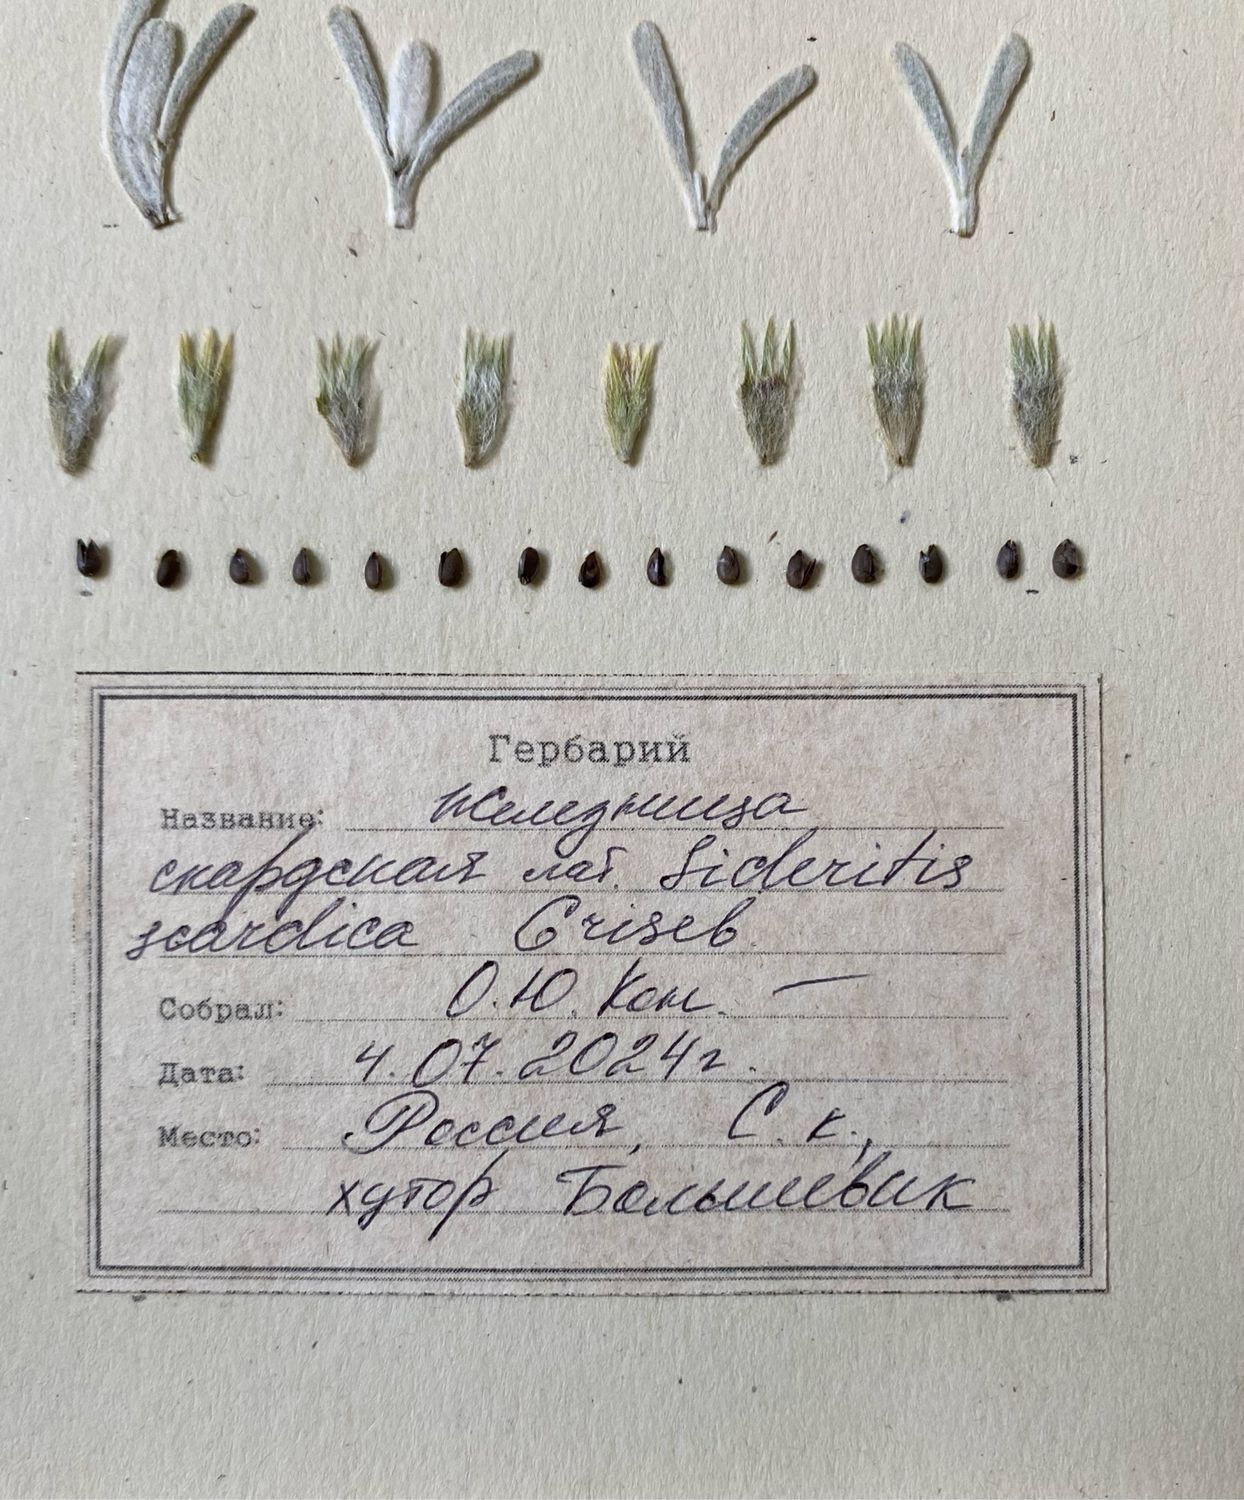 Гербарий
Название: Железница
скардская лат. Sideritis
scardica Griseb
Собрал: О.Ю. Кон.
Дата: 4.07.2024г.
Место: Россия, С.к.,
хутор Большевик